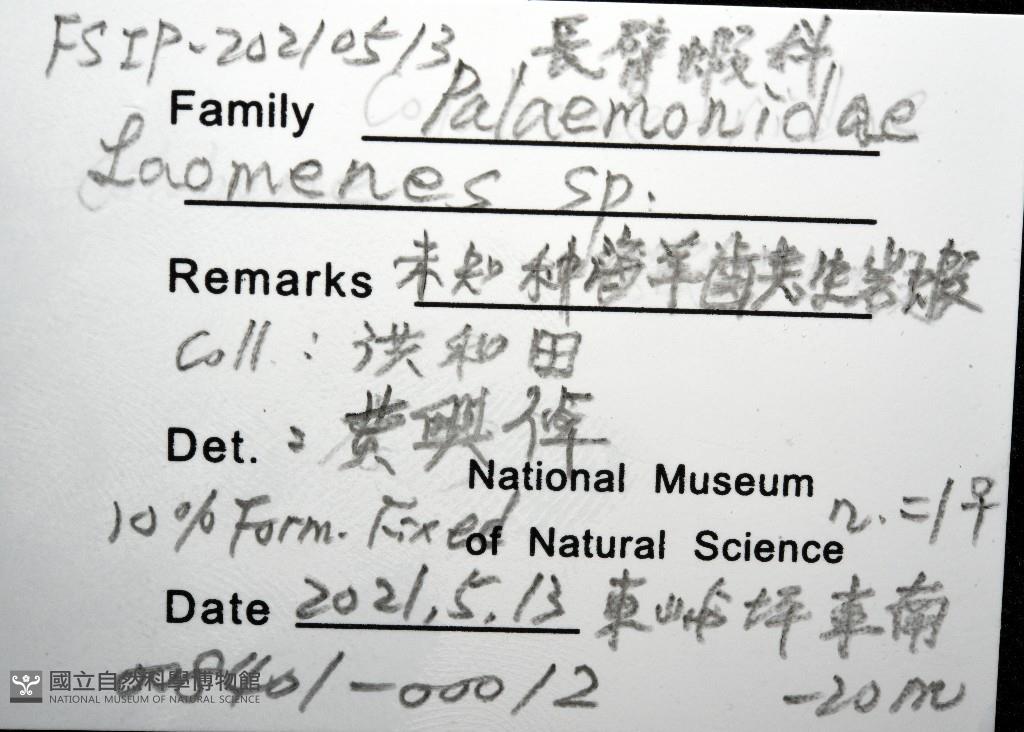 FSIP-20210513, 長臂蝦科
Family Palaemonidae
Laomenes sp.
Remarks 未知种海羊齒共生岩蝦
Coll.: 洪和田
Det.: 黃興倬
National Museum
10% Form. Fixed of Natural Science n.=1♀
Date 2021.5.13 東嶼坪東南
-00012 -20m
國立自然科學博物館
NATIONAL MUSEUM OF NATURAL SCIENCE